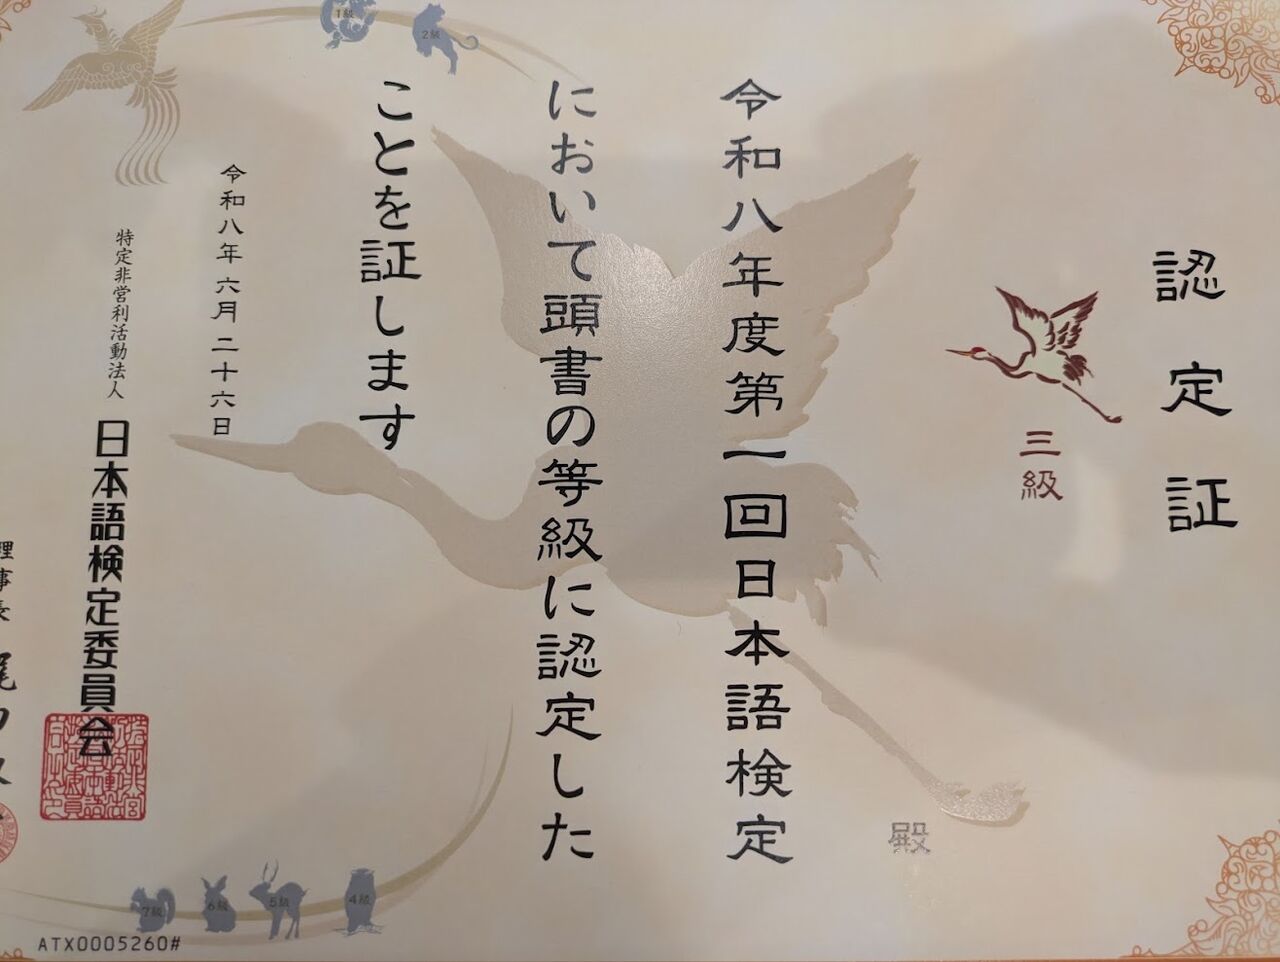 認定証
三級
殿
令和八年度第一回日本語検定
において頭書の等級に認定した
ことを証します
令和八年六月二十六日
特定非営利活動法人
日本語検定委員会
理事長
1級
2級
4級
5級
6級
7級
ATX0005260#